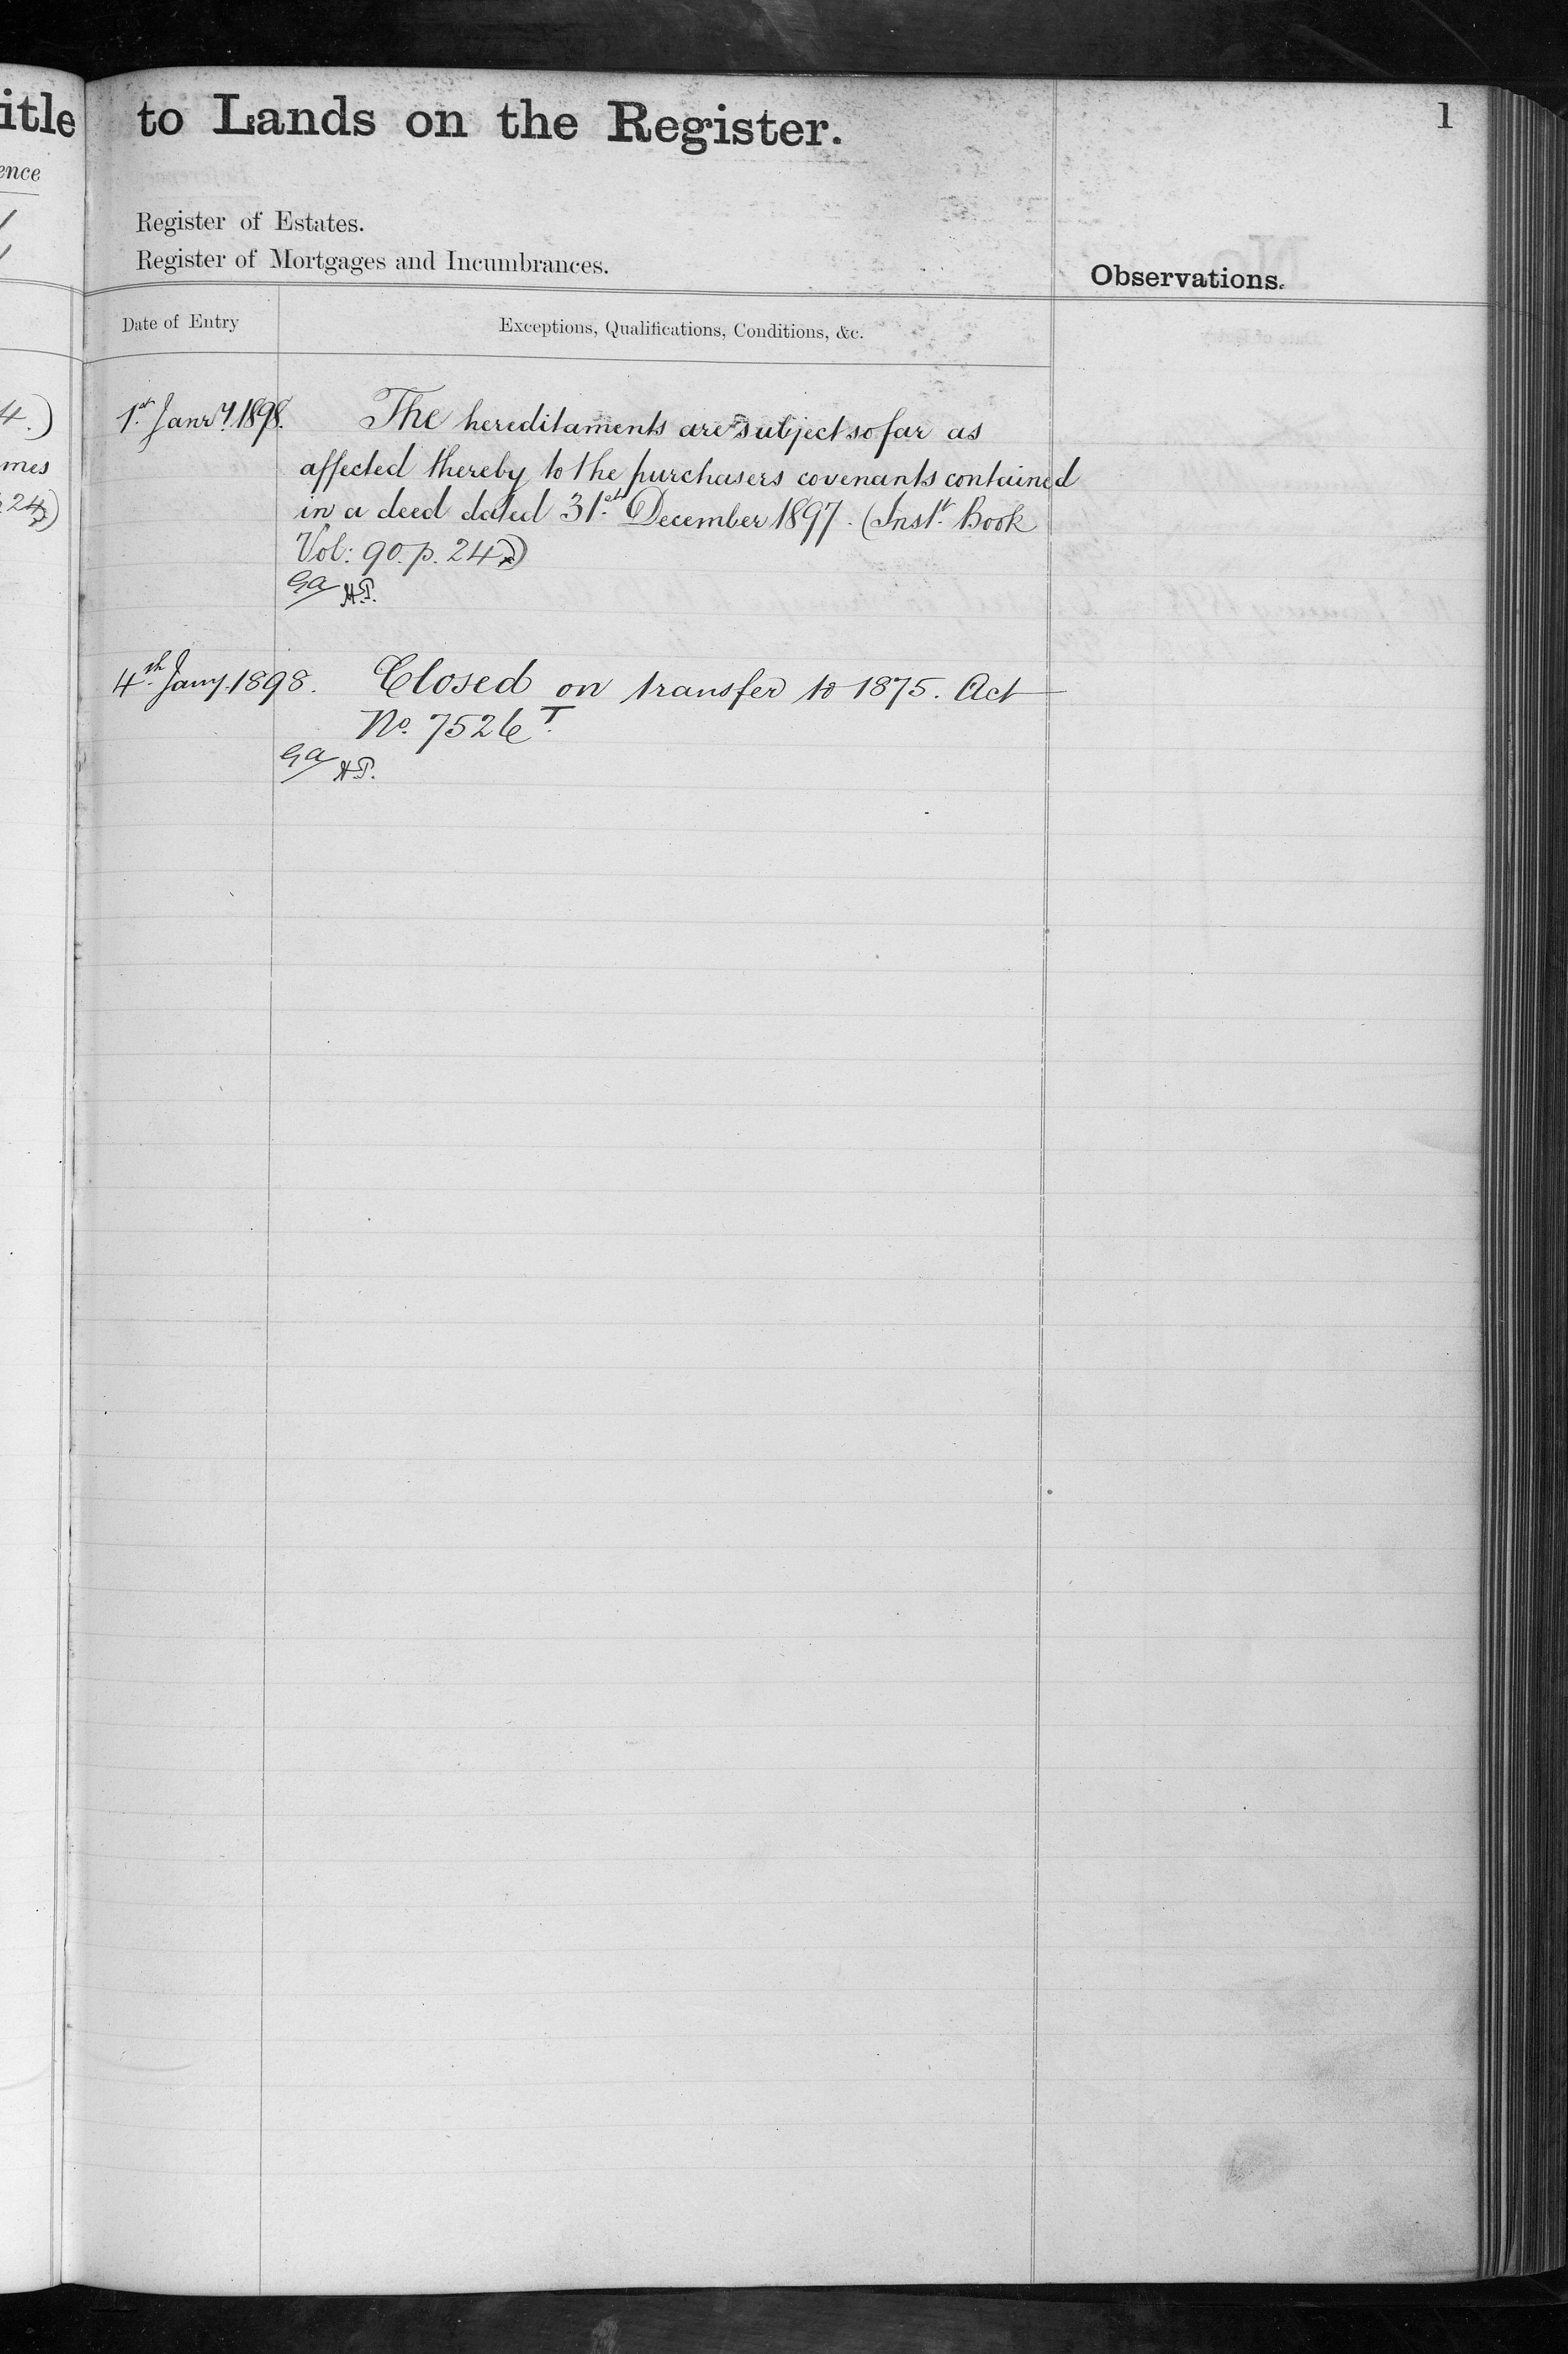 itle to Lands on the Register. 1
ence
Register of Estates.
Register of Mortgages and Incumbrances.
Observations.
Date of Entry Exceptions, Qualifications, Conditions, &c.
4.)
mes
1st Janry. 1898. The hereditaments are subject so far as
affected thereby to the purchasers covenants contained
in a deed dated 31st December 1897. (Inst. Book
Vol: 90. p. 24)
Ga H.P.
4th Jany. 1898. Closed on transfer to 1875. Act
No. 7526 T.
Ga H.P.